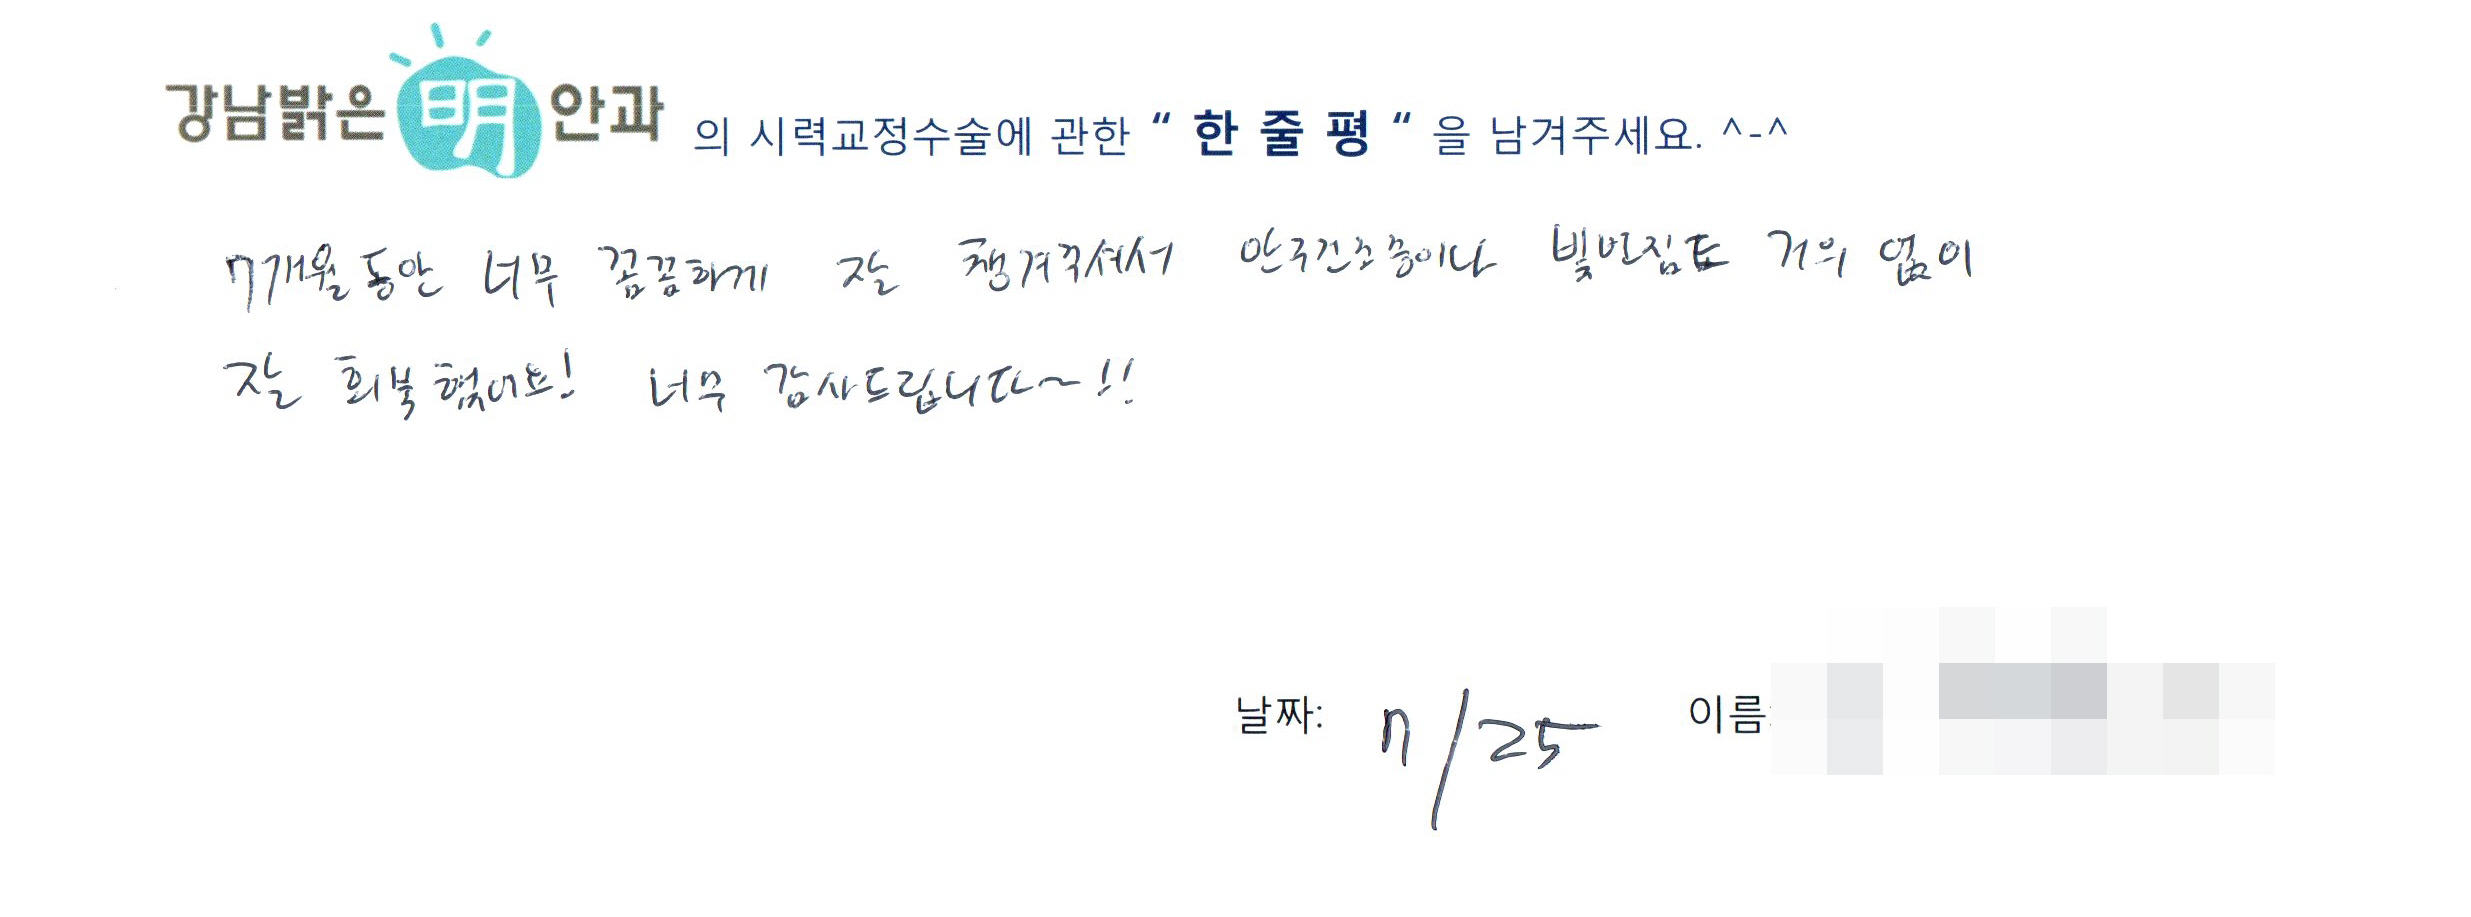 강남밝은 明 안과 의 시력교정수술에 관한 “ 한 줄 평 “ 을 남겨주세요. ^-^
7개월동안 너무 꼼꼼하게 잘 챙겨주셔서 안구건조증이나 빛번짐도 거의 없이
잘 회복했어요! 너무 감사드립니다~!!
날짜: 7/25 이름: